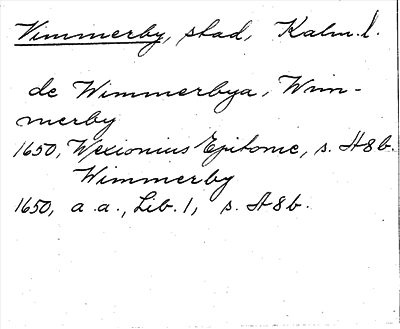 Vimmerby, stad, Kalm. l.
de Wimmerbya, Wim-
merby
1650, Wexionius Epitome, s. A8b.
Wimmerby
1650, a.a., Lib. 1, s. A8b.